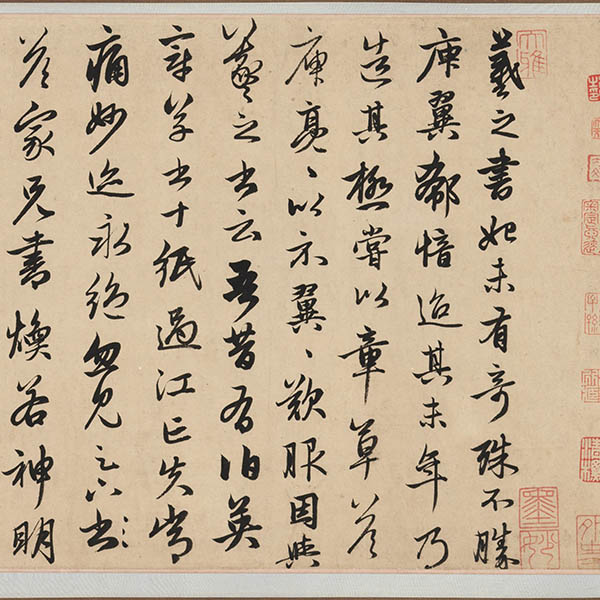 羲之書始未有奇殊不勝
庾翼郗愔迨其末年乃
造其極嘗以章草答
庾亮〻以示翼〻歎服因與
羲之書云吾昔有伯英
章草書十紙過江亡失常
痛妙迹永絕忽見足下書
答家兄書煥若神明
大雅
墨妙